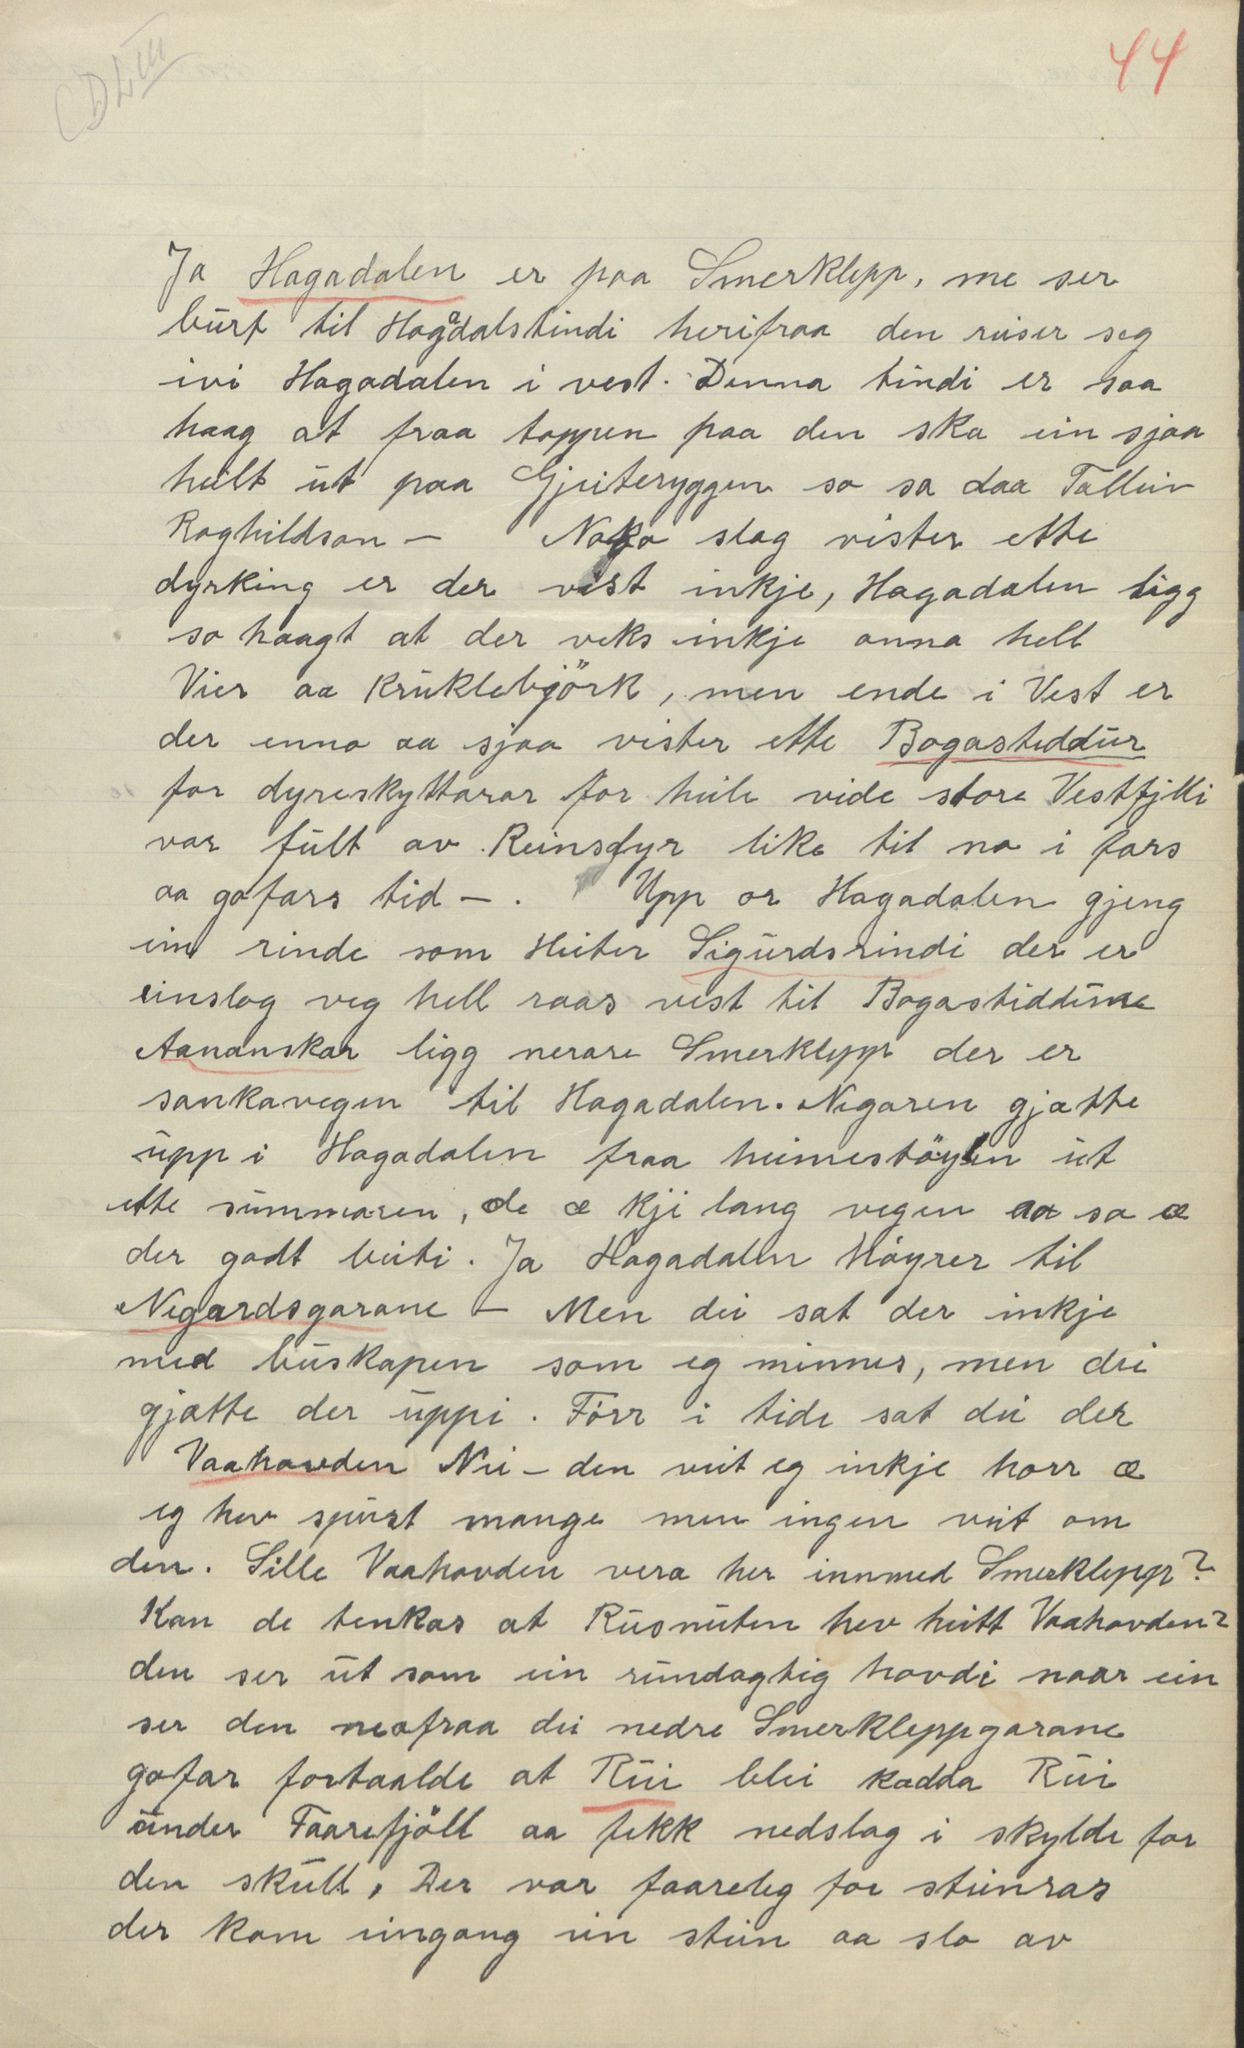 CDLIII
44
Ja Hagadalen er paa Smerklepp, me ser
burt til Hagådalstindi herifraa den reiser seg
ivi Hagadalen i vest. Denna tindi er saa
haag at fraa toppen paa den ska ein sjaa
heilt ut paa Gjeiteryggen so sa daa Talleiv
Roghildson — Noko slag vister ette
dyrking er der vist inkje, Hagadalen ligg
so haagt at der veks inkje anna hell
Vier aa Krüklebjörk, men ende i Vest er
der enno aa sjaa vister ette Bogasteddür
for dyreskyttarar for heile vide store Vestfjelli
var fült av Reinsdyr like til no i fars
aa gofars tid — . Upp or Hagadalen gjeng
ein rinde som Heiter Sigürdsrindi der er
einslag veg hell raas vest til Bogastiddune
Aananskar ligg nerare Smerklepp der er
sankavegen til Hagadalen. Nigaren gjætte
üpp i Hagadalen fraa heimestöylen üt
ette sümmaren, de æ kji lang vegen aa so æ
der godt beiti. Ja Hagadalen Höyrer til
Negardsgarane — Men dei sat der inkje
med büskapen som eg minnes, men dei
gjætte der üppi. Förr i tide sat dei der
Vaahovden Nei — den veit eg inkje horr æ
eg hev spürt mange men ingen veit om
den. Sille Vaahovden vera her innmed Smerklepp?
Kan de tenkas at Rüsnüten hev heitt Vaahovden?
den ser üt som ein ründagtig hovdi naar ein
ser den neafraa dei nedre Smerkleppgarane
gofar fortaalde at Rüi blei kadda Rüi
ünder Faarefjöll aa fekk nedslag i skylde for
den sküll, Der var faareleg for steinras
der kom eingang ein stein aa slo av